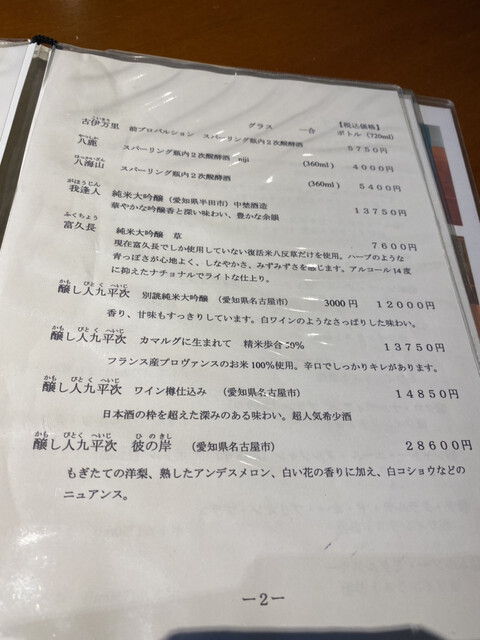 グラス 一合 【税込価格】
ボトル(720ml)
こいまり
古伊万里 前プロバルション スパーリング瓶内2次醗酵酒 5750円
やつしか
八鹿 スパーリング瓶内2次醗酵酒 niji (360ml) 4000円
はっかいさん
八海山 スパーリング瓶内2次醗酵酒 (360ml) 5400円
がほうじん
我逢人 純米大吟醸(愛知県半田市)中埜酒造 13750円
華やかな吟醸香と深い味わい、豊かな余韻
ふくちょう
富久長 純米大吟醸 草 7600円
現在富久長でしか使用していない復活米八反草だけを使用。ハーブのような
青っぽさが心地よく、しなやかさ、みずみずさを感じます。アルコール14度
に抑えたナチョナルでライトな仕上り。
かも びとく へいじ
醸し人九平次 別誂純米大吟醸 (愛知県名古屋市) 3000円 12000円
香り、甘味もすっきりしています。白ワインのようなさっぱりした味わい。
かも びとく へいじ
醸し人九平次 カマルグに生まれて 精米歩合 13750円
フランス産プロヴァンスのお米100%使用。辛口でしっかりキレがあります。
かも びとく へいじ
醸し人九平次 ワイン樽仕込み (愛知県名古屋市) 14850円
日本酒の枠を超えた深みのある味わい。超人気希少酒
かも びとく へいじ ひのきし
醸し人九平次 彼の岸 (愛知県名古屋市) 28600円
もぎたての洋梨、熟したアンデスメロン、白い花の香りに加え、白コショウなどの
ニュアンス。
−2−